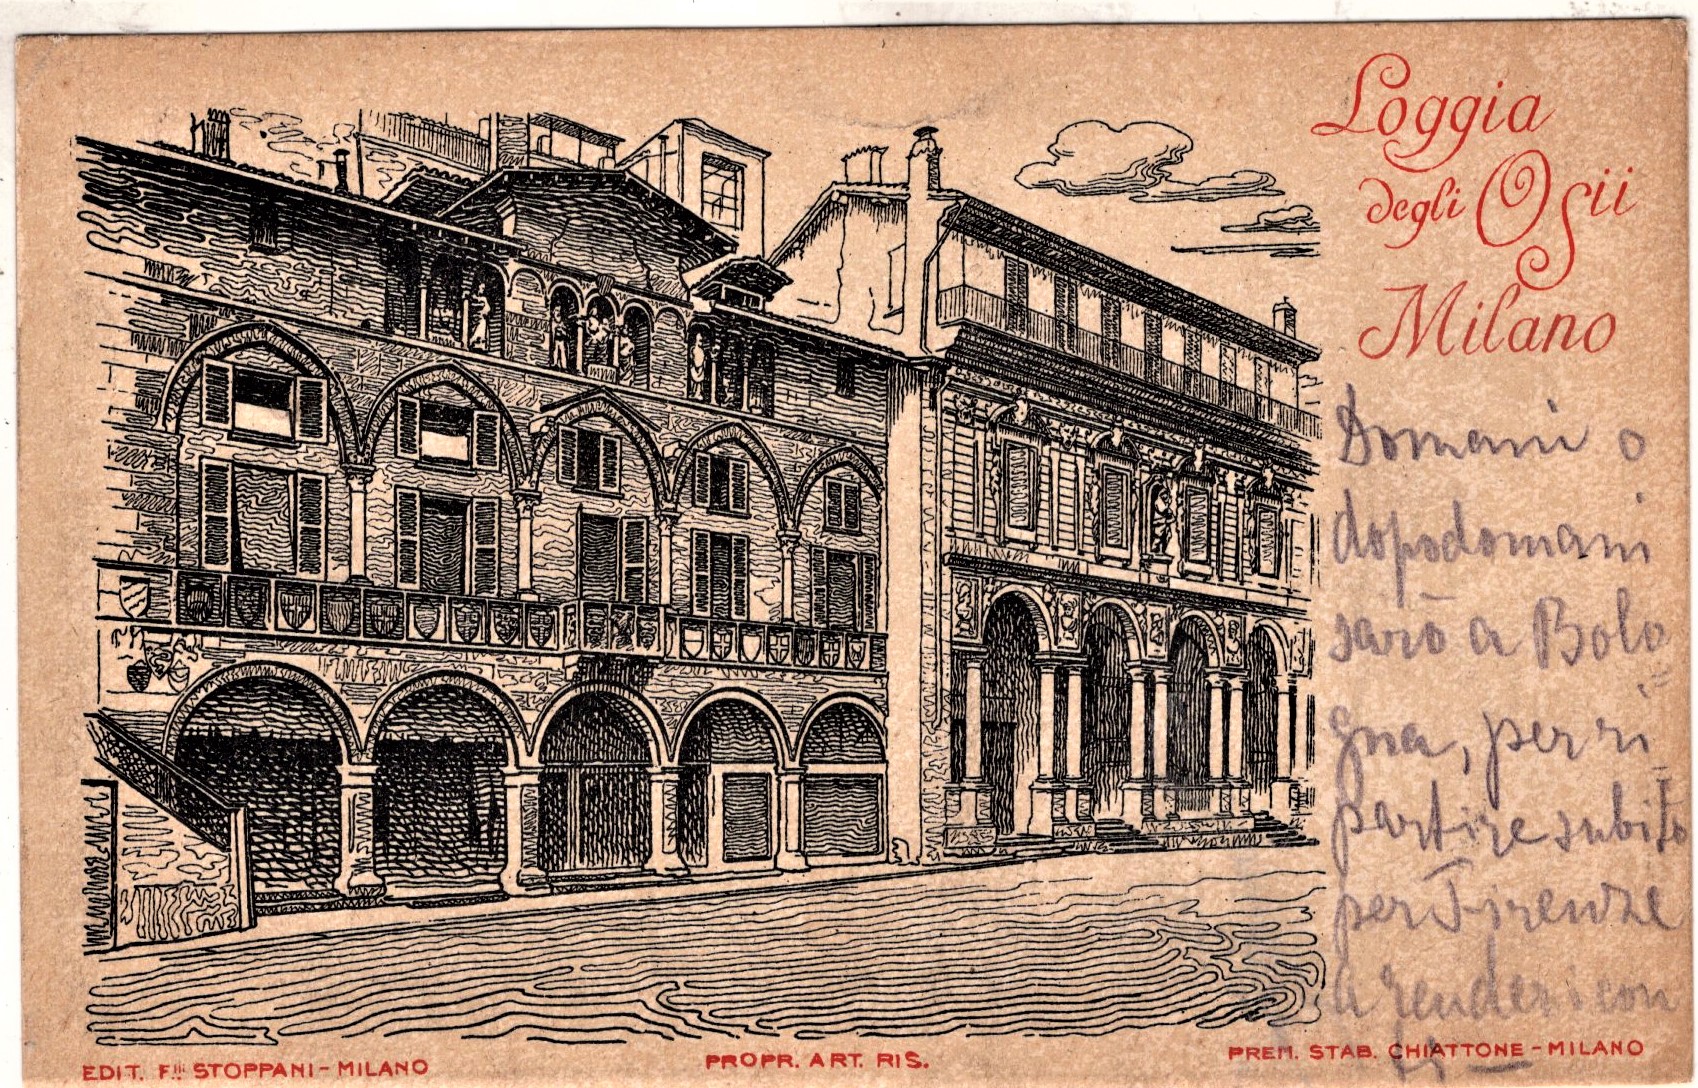 Loggia
degli Osii
Milano
Domani o
dopodomani
sarò a Bolo
=
gna, per ri
partire subito
per Firenze
a render i con
ti —
EDIT. F.lli STOPPANI - MILANO
PROPR. ART. RIS.
PREM. STAB. CHIATTONE - MILANO